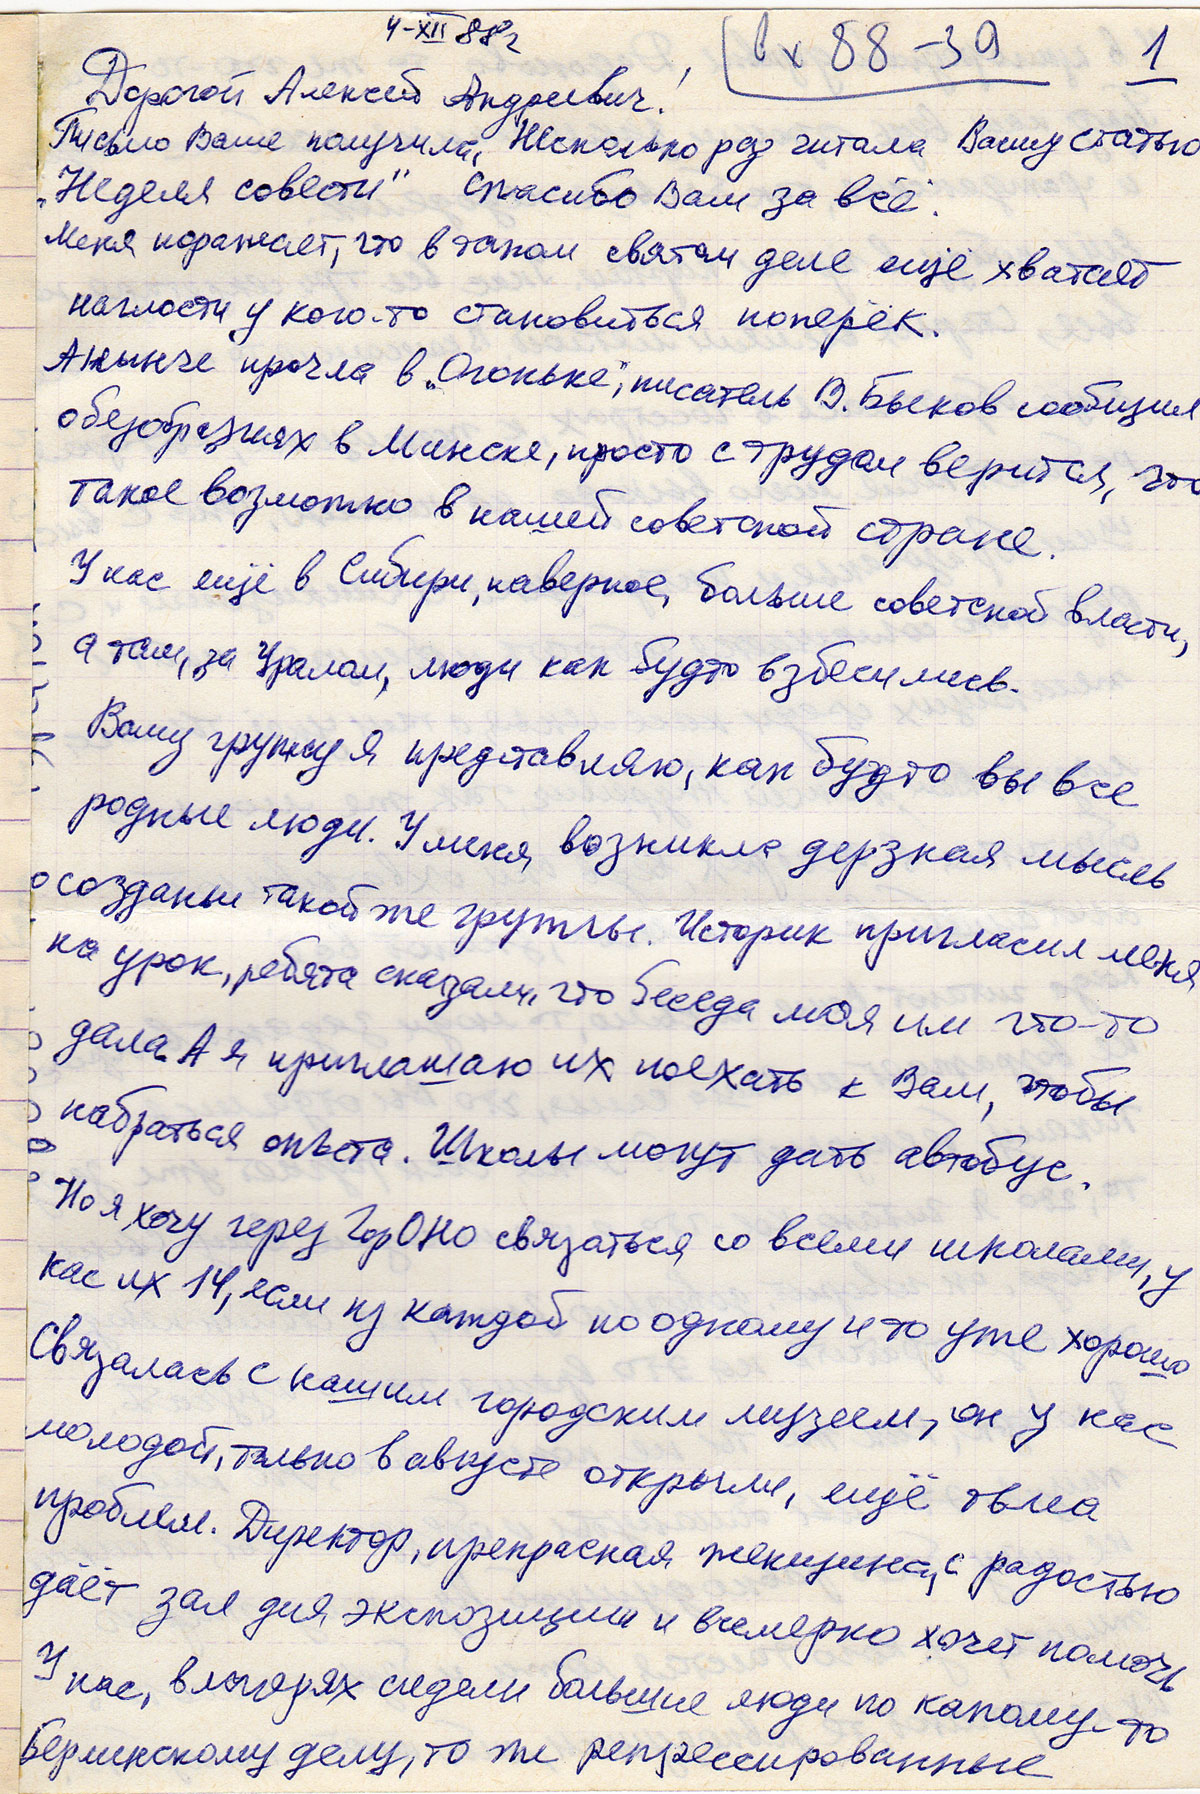 4-XII 88г
Вх 88-39 1
Дорогой Алексей Андреевич!
Письмо Ваше получила, Несколько раз читала Вашу статью
„Неделя совести" Спасибо Вам за всё.
Меня поражает, что в таком святом деле ещё хватает
наглости у кого-то становиться поперёк.
А нынче прочла в „Огоньке", писатель В. Быков сообщил
о безобразиях в Минске, просто с трудом верится, что
такое возможно в нашей советской стране.
У нас ещё в Сибири, наверное, больше советской власти,
а там, за Уралом, люди как будто взбесились.
Вашу группу я представляю, как будто вы все
родные люди. У меня возникла дерзкая мысль
о созданьи такой же группы. Историк пригласил меня
на урок, ребята сказали, что беседа моя им что-то
дала. А я приглашаю их поехать к Вам, чтобы
набраться опыта. Школы могут дать автобус.
Но я хочу через ГорОНО связаться со всеми школами, у
нас их 14, если из каждой по одному и то уже хорошо
Связалась с нашим городским музеем, он у нас
молодой, только в августе открыли, ещё тьма
проблем. Директор, прекрасная женщина, с радостью
даёт зал для экспозиции и всемерно хочет помочь
У нас, в лагерях сидели большие люди по какому-то
Берлинскому делу, то же репрессированные